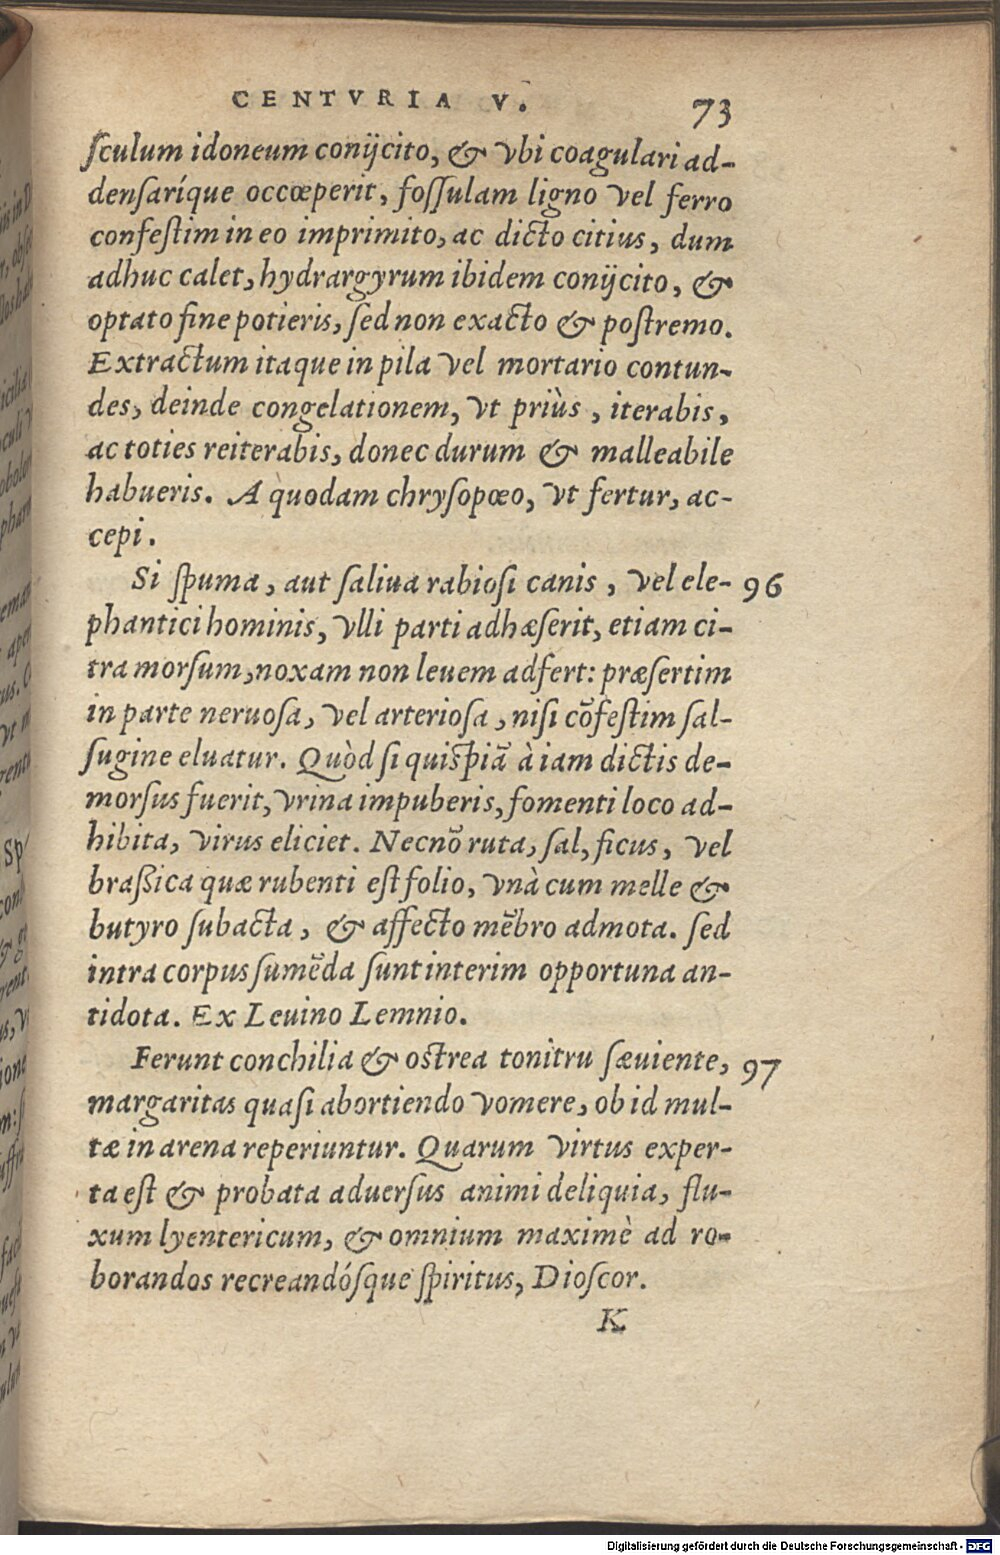 CENTVRIA V. 73
ſculum idoneum conijcito, & vbi coagulari ad-
denſaríque occœperit, foſſulam ligno vel ferro
confeſtim in eo imprimito, ac dicto citius, dum
adhuc calet, hydrargyrum ibidem conijcito, &
optato fine potieris, ſed non exacto & poſtremo.
Extractum itaque in pila vel mortario contun-
des, deinde congelationem, vt priùs, iterabis,
ac toties reiterabis, donec durum & malleabile
habueris. A quodam chryſopœo, vt fertur, ac-
cepi.
Si ſpuma, aut ſaliua rabioſi canis, vel ele- 96
phantici hominis, vlli parti adhæſerit, etiam ci-
tra morſum, noxam non leuem adfert: præſertim
in parte neruoſa, vel arterioſa, niſi cõfeſtim ſal-
ſugine eluatur. Quòd ſi quiſpiã à iam dictis de-
morſus fuerit, vrina impuberis, fomenti loco ad-
hibita, virus eliciet. Necnõ ruta, ſal, ficus, vel
braßica quæ rubenti eſt folio, vnà cum melle &
butyro ſubacta, & affecto mẽbro admota. ſed
intra corpus ſumẽda ſunt interim opportuna an-
tidota. Ex Leuino Lemnio.
Ferunt conchilia & oſtrea tonitru ſæuiente, 97
margaritas quaſi abortiendo vomere, ob id mul-
tæ in arena reperiuntur. Quarum virtus exper-
ta eſt & probata aduerſus animi deliquia, flu-
xum lyentericum, & omnium maximè ad ro-
borandos recreandóſque ſpiritus, Dioſcor.
K
Digitalisierung gefördert durch die Deutsche Forschungsgemeinschaft - DFG